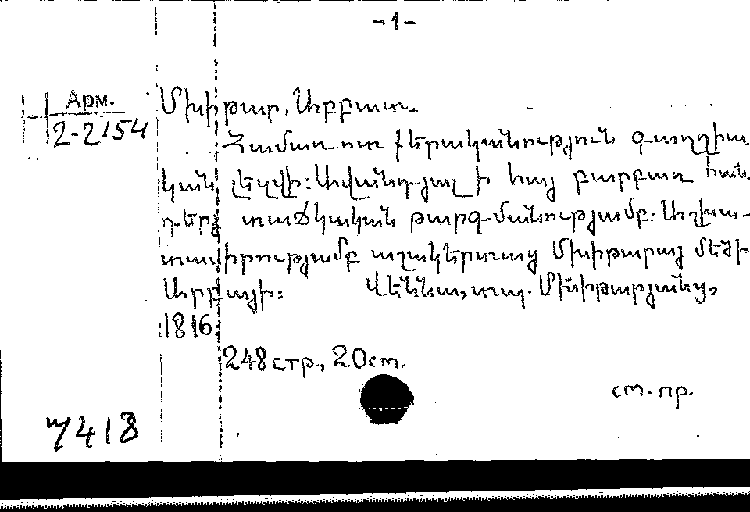 -1-
Арм.
2-2154
Մխիթար, Աբբաս.
Համառօտ քերականություն գաղղիա
կան լեզվի: Ավանդյալ ի հայ բարբառ հան
դերձ տաճկական թարգմանությամբ. Աշխա-
տասիրությամբ աշակերտաց Մխիթարայ մեծի
Աբբայի: Վեննա, տպ. Մխիթարյանց,
1816.
248 стр., 20 см.
ст. пр.
7418